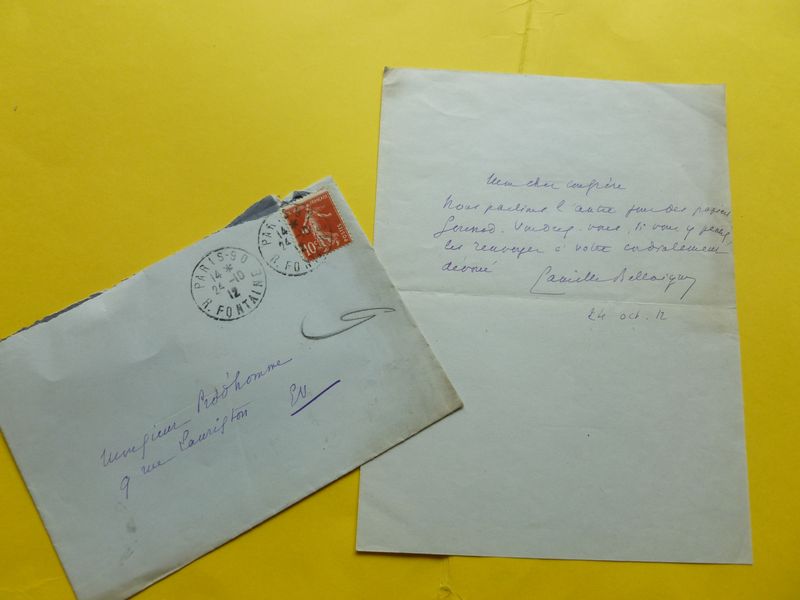 Mon cher confrère
Nous parlions l'autre jour des papiers
Gounod. Voudrez-vous, si vous y pensez,
les renvoyer à votre cordialement
dévoué
Camille Bellaigue
24 oct. 12
PARIS-90
14 *
24-10
12
R. FONTAINE
PARIS
14 *
24
R. FONT
10c
POSTES
Monsieur Prod'homme
9 rue Lauriston
EV